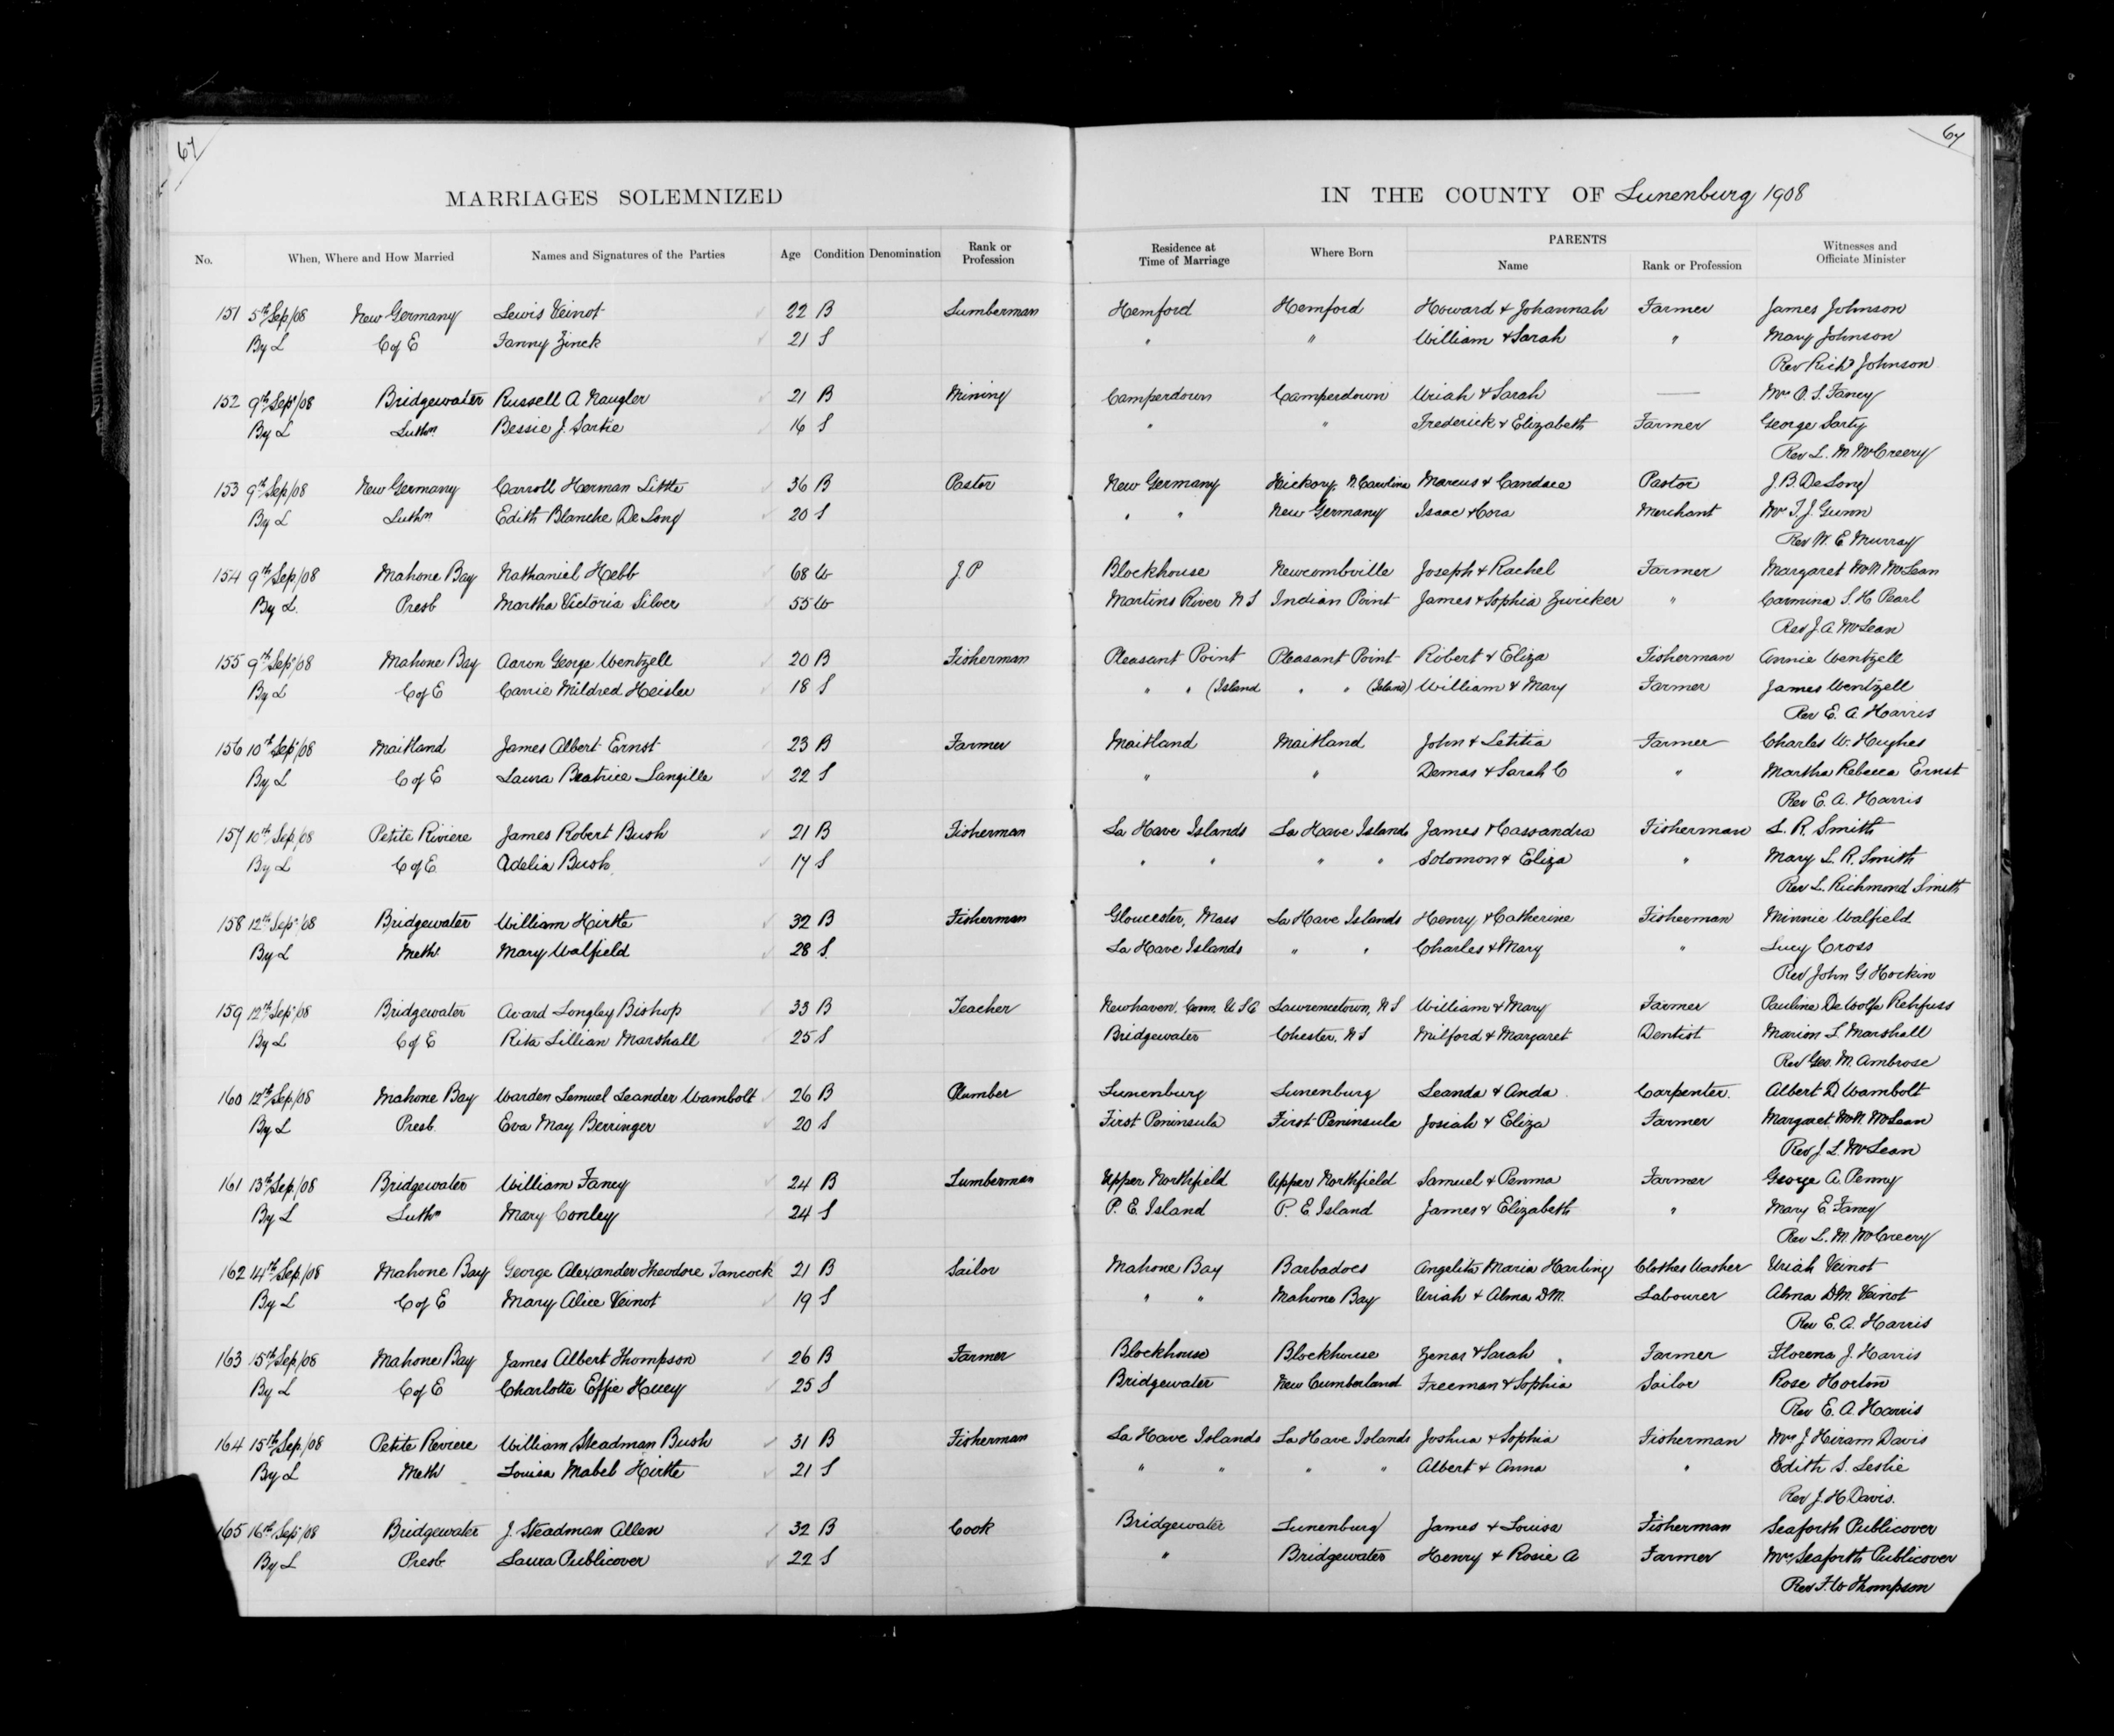 67
67
MARRIAGES SOLEMNIZED
IN THE COUNTY OF Lunenburg 1908
No. When, Where and How Married Names and Signatures of the Parties Age Condition Denomination Rank or Profession Residence at Time of Marriage Where Born PARENTS Name Rank or Profession Witnesses and Officiate Minister
151 5th Sep/08 New Germany Lewis Veinot 22 B Lumberman Hemford Hemford Howard & Johannah Farmer James Johnson
By L C of E Fanny Zinck 21 S " " William & Sarah " Mary Johnson
Rev Richd Johnson
152 9th Sep/08 Bridgewater Russell A Naugler 21 B Mining Camperdown Camperdown Uriah & Sarah — Mrs O. S. Faney
By L Luthn Bessie J. Sartie 16 S " " Frederick & Elizabeth Farmer George Sarty
Rev L. M. McCreery
153 9th Sep/08 New Germany Carroll Herman Little 36 B Pastor New Germany Hickory, N. Carolina Marcus & Candace Pastor J. B. DeLong
By L Luthn Edith Blanche DeLong 20 S " " New Germany Isaac & Cora Merchant Mrs T. J. Gunn
Rev W. E. Murray
154 9th Sep/08 Mahone Bay Nathaniel Hebb 68 W J. P Blockhouse Newcombville Joseph & Rachel Farmer Margaret McN McLean
By L. Presb Martha Victoria Silver 55 W Martins River N S Indian Point James & Sophia Zwicker " Carmina S. H Pearl
Rev J. A McLean
155 9th Sep/08 Mahone Bay Aaron George Wentzell 20 B Fisherman Pleasant Point Pleasant Point Robert & Eliza Fisherman Annie Wentzell
By L C of E Carrie Mildred Heisler 18 S " " (Island " " (Island) William & Mary Farmer James Wentzell
Rev E. A. Harris
156 10th Sep/08 Maitland James Albert Ernst 23 B Farmer Maitland Maitland John & Letitia Farmer Charles W. Hughes
By L C of E Laura Beatrice Langille 22 S " " Demas & Sarah C " Martha Rebecca Ernst
Rev E. A. Harris
157 10th Sep/08 Petite Riviere James Robert Bush 21 B Fisherman La Have Islands La Have Islands James & Cassandra Fisherman L. R. Smith
By L C of E Adelia Bush 17 S " " " " Solomon & Eliza " Mary L. R. Smith
Rev L. Richmond Smith
158 12th Sep/08 Bridgewater William Hirtle 32 B Fisherman Gloucester, Mass La Have Islands Henry & Catherine Fisherman Minnie Walfield
By L Meth Mary Walfield 28 S. La Have Islands " " Charles & Mary " Lucy Cross
Rev John G Hockin
159 12th Sep/08 Bridgewater Avard Longley Bishop 33 B Teacher Newhaven, Conn. U S A Lawrencetown, N S William & Mary Farmer Pauline DeWolfe Rehfuss
By L C of E Rita Lillian Marshall 25 S Bridgewater Chester, N S Milford & Margaret Dentist Marion L. Marshall
Rev Geo. M. Ambrose
160 12th Sep/08 Mahone Bay Warden Lemuel Leander Wambolt 26 B Plumber Lunenburg Lunenburg Leanda & Anda Carpenter. Albert D Wambolt
By L Presb. Eva May Berringer 20 S First Peninsula First Peninsula Josiah & Eliza Farmer Margaret McN. McLean
Rev J. L. McLean
161 13th Sep./08 Bridgewater William Faney 24 B Lumberman Upper Northfield Upper Northfield Samuel & Penma Farmer George A. Penny
By L Luthn Mary Conley 24 S P. E. Island P. E. Island James & Elizabeth " Mary E. Faney
Rev L. M. McCreery
162 14th Sep./08 Mahone Bay George Alexander Theodore Tancock 21 B Sailor Mahone Bay Barbadoes Angelita Maria Harling Clothes Washer Uriah Veinot
By L C of E Mary Alice Veinot 19 S " " Mahone Bay Uriah & Alma D M. Labourer Alma D M. Veinot
Rev E. A. Harris
163 15th Sep/08 Mahone Bay James Albert Thompson 26 B Farmer Blockhouse Blockhouse Zenas & Sarah Farmer Florena J. Harris
By L C of E Charlotte Effie Huey 25 S Bridgewater New Cumberland Freeman & Sophia Sailor Rose Horton
Rev E. A. Harris
164 15th Sep./08 Petite Reviere William Steadman Bush 31 B Fisherman La Have Islands La Have Islands Joshua & Sophia Fisherman Mrs J Hiram Davis
By L Meth Louisa Mabel Hirtle 21 S " " " " Albert & Anna " Edith S. Leslie
Rev J. H Davis.
165 16th Sep/08 Bridgewater J. Steadman Allen 32 B Cook Bridgewater Lunenburg James & Louisa Fisherman Seaforth Publicover
By L Presb Laura Publicover 22 S " Bridgewater Henry & Rosie A Farmer Mrs Seaforth Publicover
Rev F. W Thompson